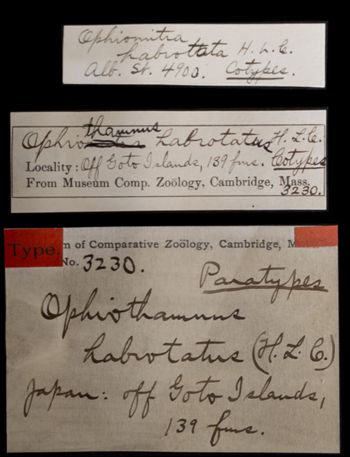 Ophiomitra
habrotata H. L. C.
Alb. St. 4900. Cotypes.
thamnus
Ophio habrotatus H. L. C.
Locality: Off Goto Islands, 139 fms. Cotypes
From Museum Comp. Zoölogy, Cambridge, Mass.
3230.
Type. m of Comparative Zoölogy, Cambridge, M
No. 3230.
Paratypes
Ophiothamnus
habrotatus (H. L. C.)
Japan: off Goto Islands,
139 fms.